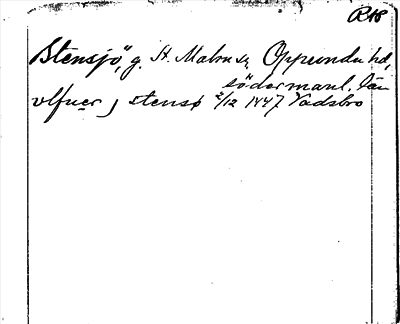 R18
Stensjö, g. St. Malm sn, Oppunda hd,
södermanl. län
vlfuer j stensø 2/12 1447 Vadsbro